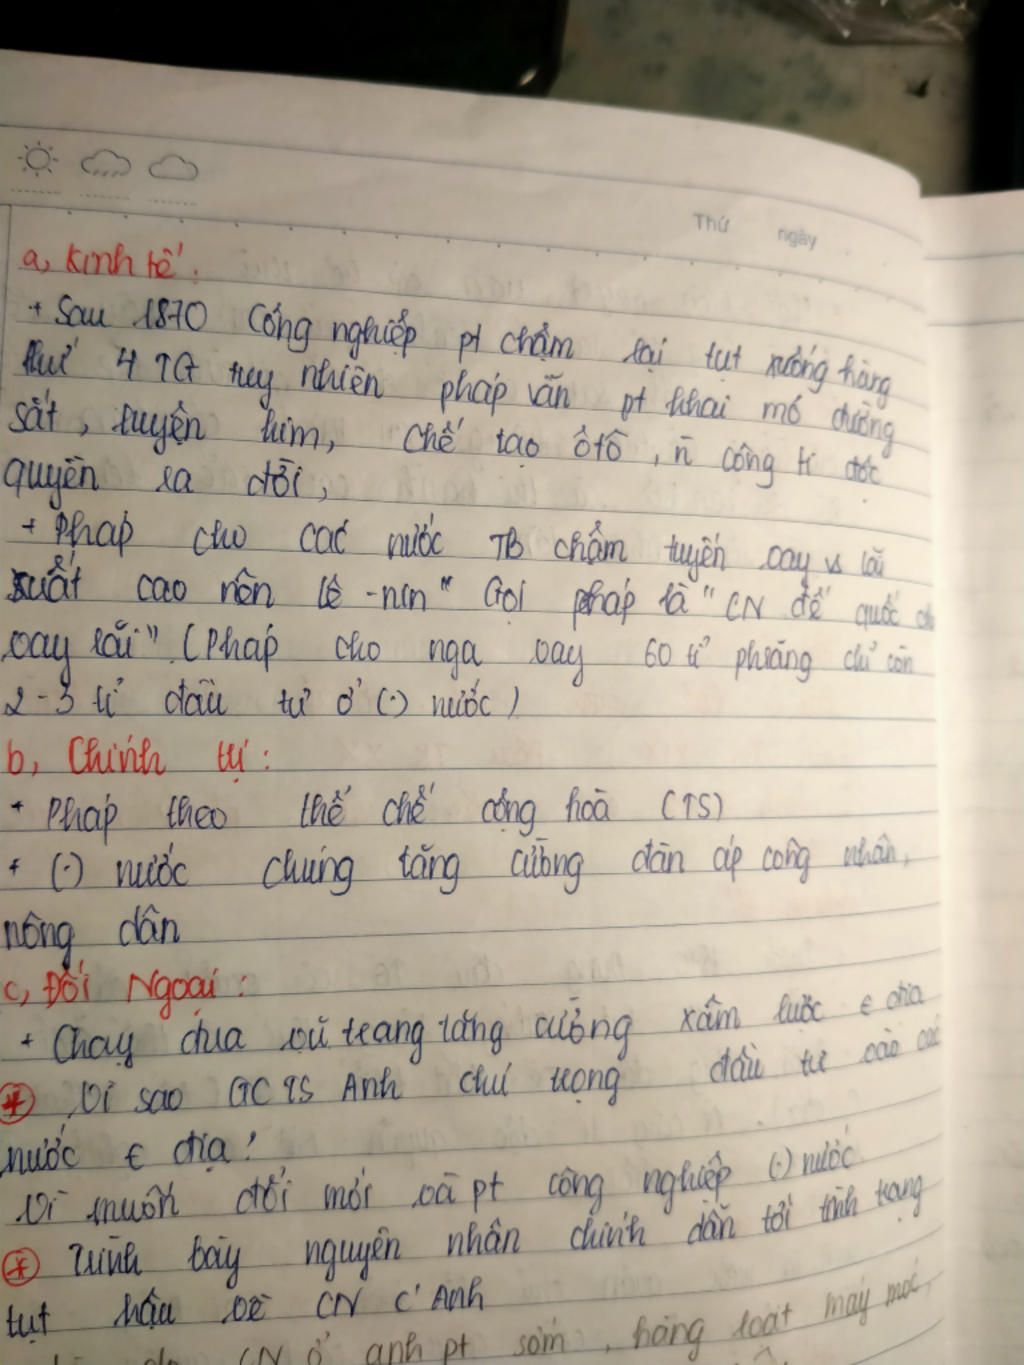 Thứ ngày
a, Kinh tế :
+ Sau 1870 Công nghiệp pt chậm lại tụt xuống hàng
thứ 4 TG tuy nhiên pháp vẫn pt khai mỏ đường
sắt, luyện kim, chế tạo ôtô, n̄ công ti độc
quyền ra đời,
+ Pháp cho các nước TB chậm tuyến vay vs lãi
xuất cao nên lê-nin " Gọi pháp là " CN đế quốc cho
vay lãi" (Pháp cho nga vay 60 tỉ phrăng chỉ còn
2-3 tỉ đầu tư ở (.) nước)
b, Chính trị :
+ Pháp theo thể chế cộng hoà (TS)
+ (.) nước chúng tăng cường đàn áp công nhân,
nông dân
c, Đối Ngoại :
+ Chạy đua vũ trang tăng cường xâm lược € địa
* Vì sao GCTS Anh chú trọng đầu tư vào các
nước € địa?
Vì muốn đổi mới và pt công nghiệp (.) nước
* Trình bày nguyên nhân chính dẫn tới tình trạng
tụt hậu về CN c' Anh
CN ở anh pt sớm, hàng loạt máy móc,